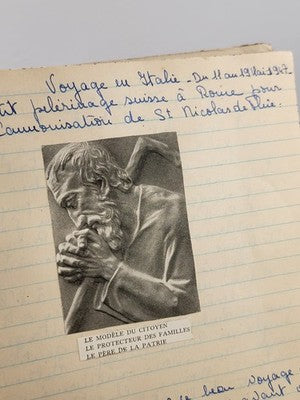 Voyage en Italie - Du 11 au 19 Mai 1947
pèlerinage suisse à Rome pour
canonisation de St Nicolas de Flüe.
LE MODÈLE DU CITOYEN
LE PROTECTEUR DES FAMILLES
LE PÈRE DE LA PATRIE
beau voyage
avant